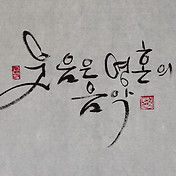 웃음은 영혼의
음악